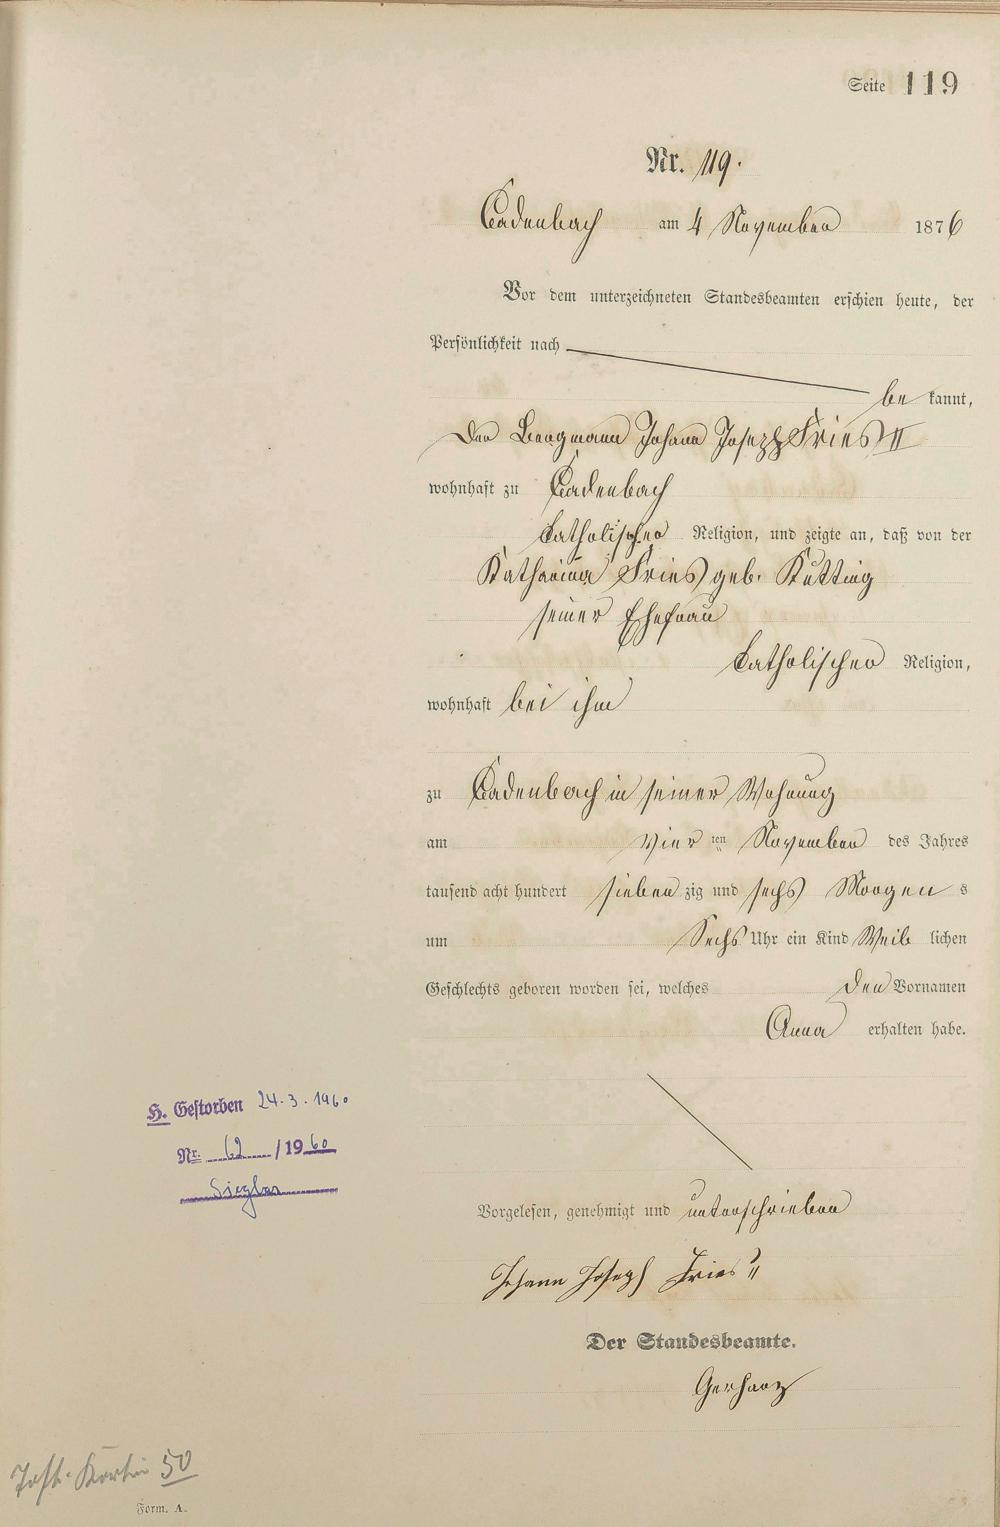 Seite 119
Nr. 119.
Cadenbach am 4 November 1876
Vor dem unterzeichneten Standesbeamten erschien heute, der
Persönlichkeit nach
be kannt,
der Bergmann Johann Joseph Fries II
wohnhaft zu Cadenbach
katholischer Religion, und zeigte an, daß von der
Katharina Fries geb. Kutting
seiner Ehefrau
katholischer Religion,
wohnhaft bei ihm
zu Cadenbach in seiner Wohnung
am vier ten November des Jahres
tausend acht hundert sieben zig und sechs Morgen s
um Sechs Uhr ein Kind Weib lichen
Geschlechts geboren worden sei, welches den Vornamen
Anna erhalten habe.
H. Gestorben 24.3.1960
Nr. 62 /1960
Sieglar
Vorgelesen, genehmigt und unterschrieben
Johann Joseph Fries II
Der Standesbeamte.
Gerharz
50
Form. A.